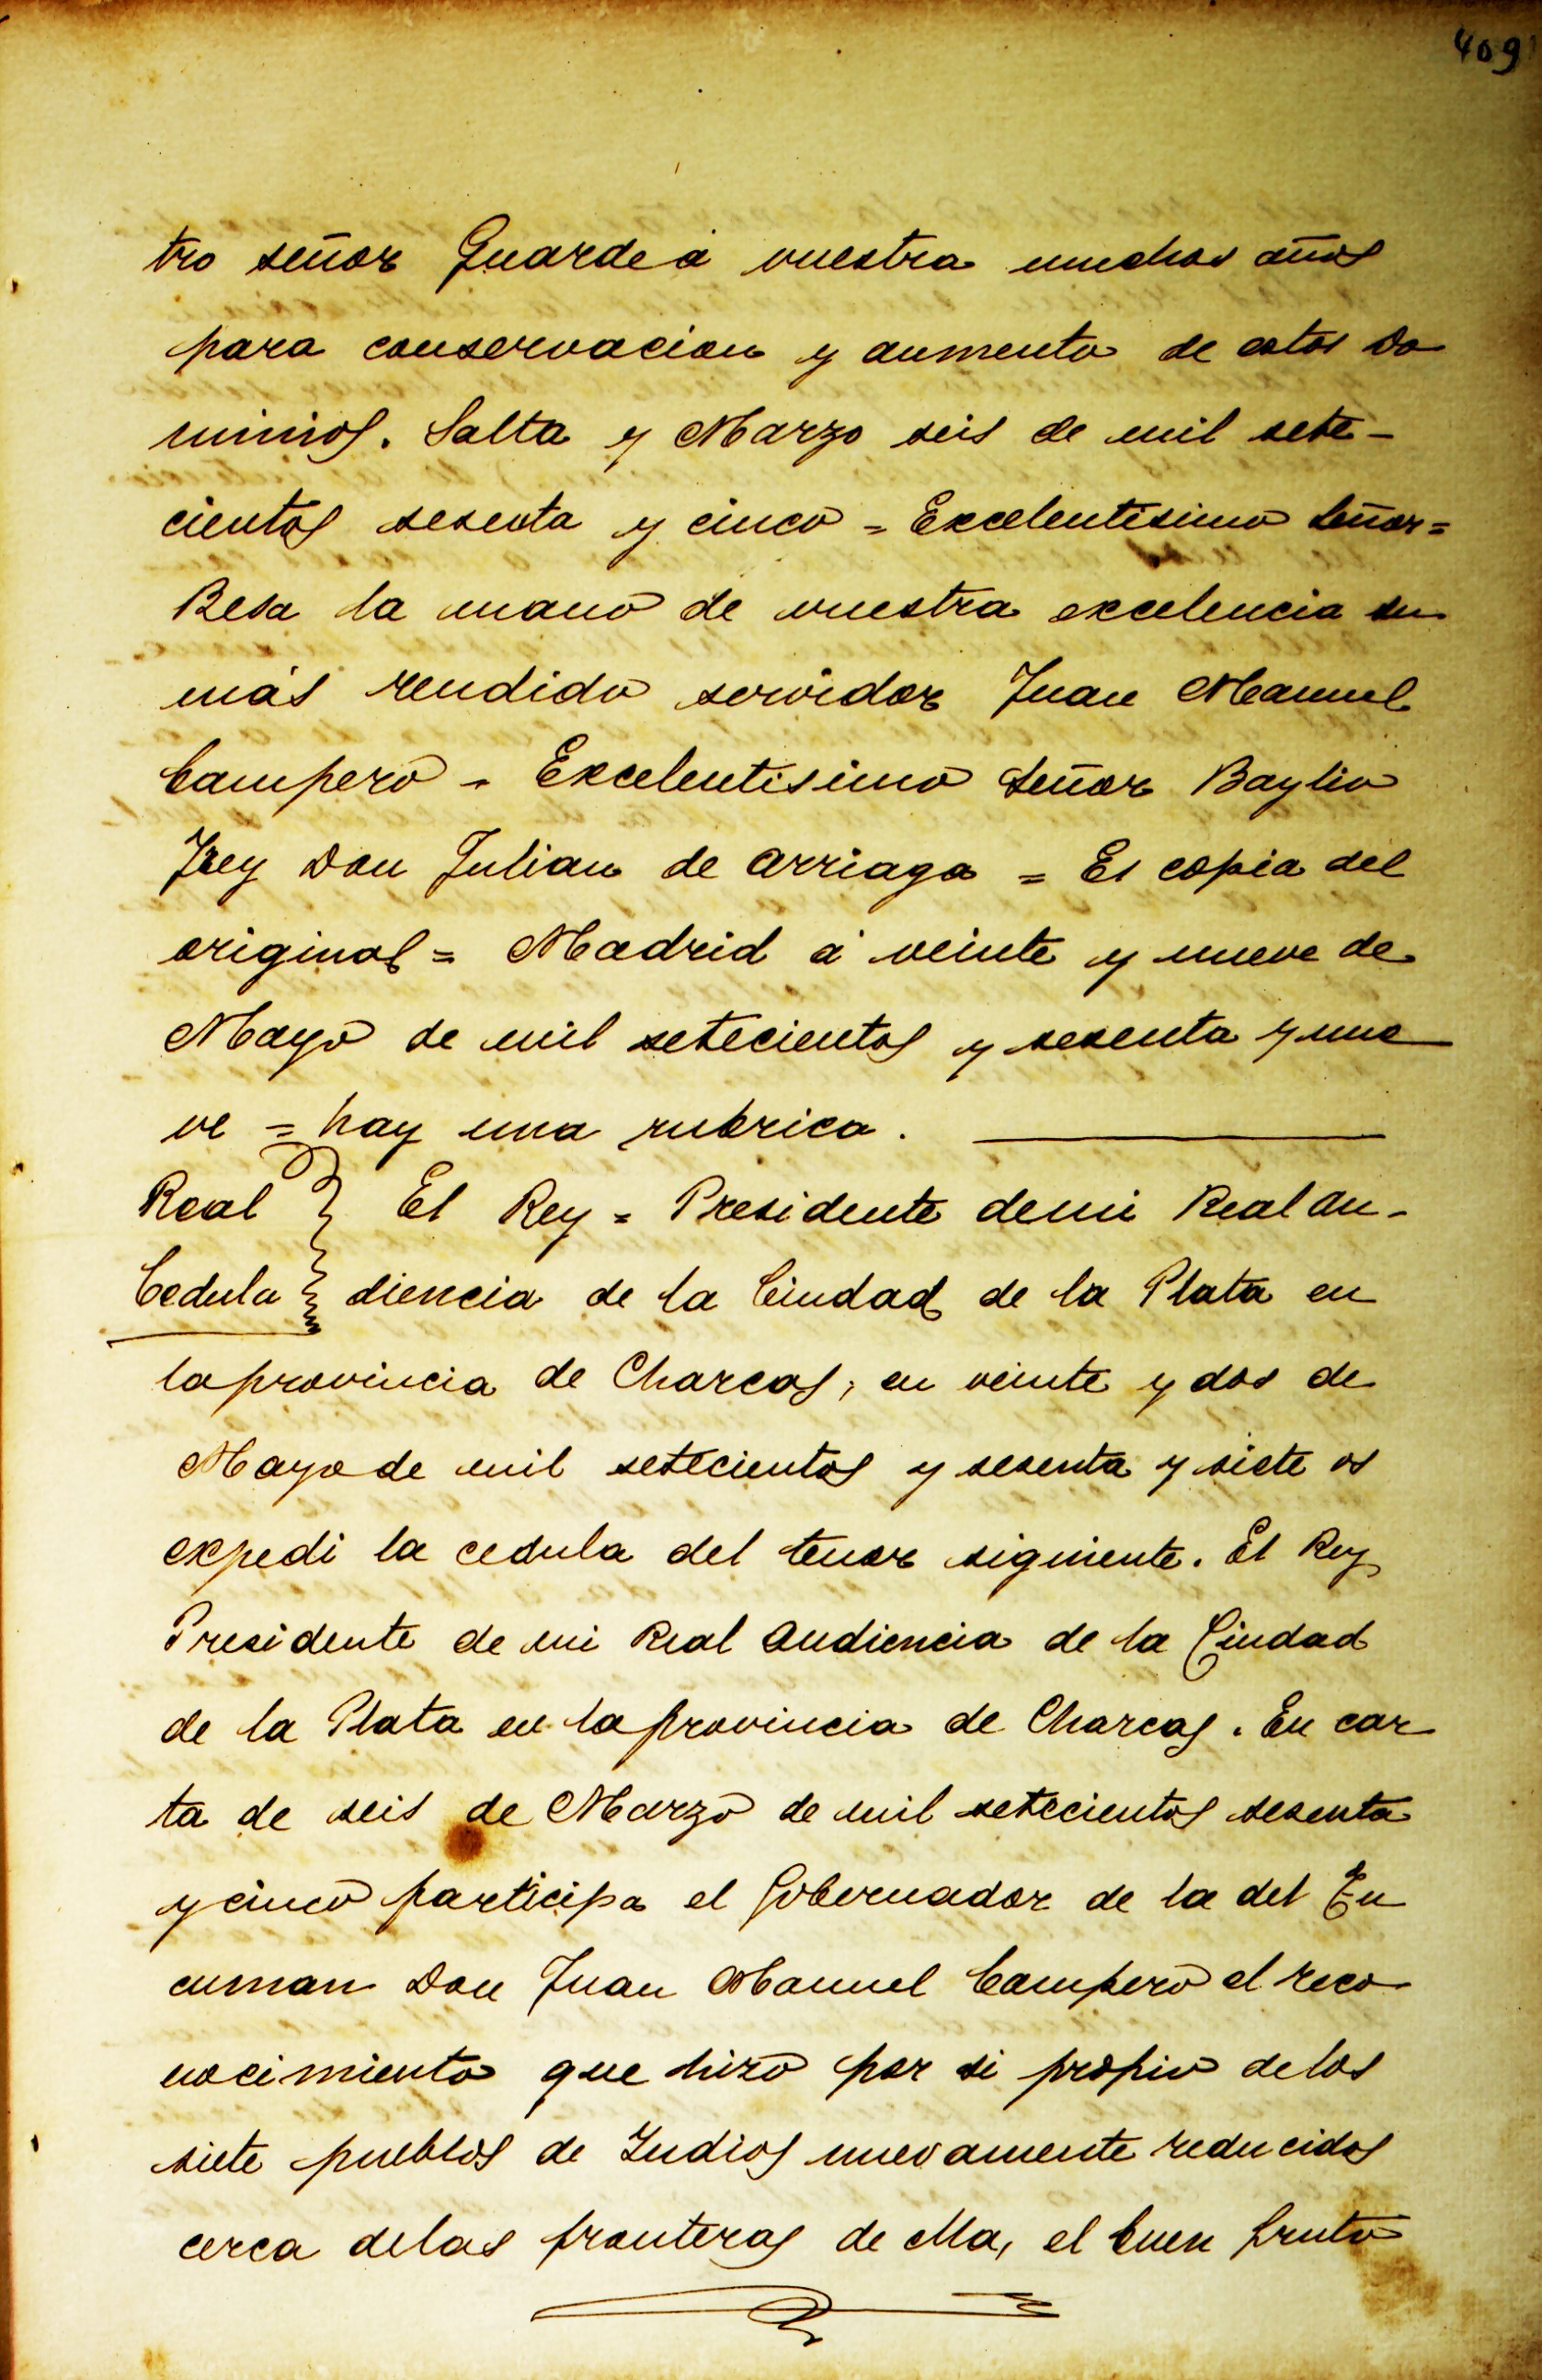 409
tro señor Guarde á vuestra muchos años
para conservacion y aumento de estos Do
minios. Salta y Marzo seis de mil sete-
cientos sesenta y cinco = Excelentisimo Señor =
Besa la mano de vuestra excelencia su
más rendido servidor Juan Manuel
Campero - Excelentisimo Señor Baylio
Frey Don Julian de Arriaga = Es copia del
original = Madrid á veinte y nueve de
Mayo de mil setecientos y sesenta y nue
ve = hay una rubrica.
Real } El Rey = Presidente de mi Real Au-
Cedula } diencia de la Ciudad de la Plata en
la provincia de Charcas, en veinte y dos de
Mayo de mil setecientos y sesenta y siete os
expedi la cedula del tenor siguiente. El Rey
Presidente de mi Real Audiencia de la Ciudad
de la Plata en la provincia de Charcas. En car
ta de seis de Marzo de mil setecientos sesenta
y cinco participa el Gobernador de la del Tu
cuman Don Juan Manuel Campero el reco
nocimiento que hizo por si propio de los
siete pueblos de Indios nuevamente reducidos
cerca de las fronteras de ella, el buen fruto